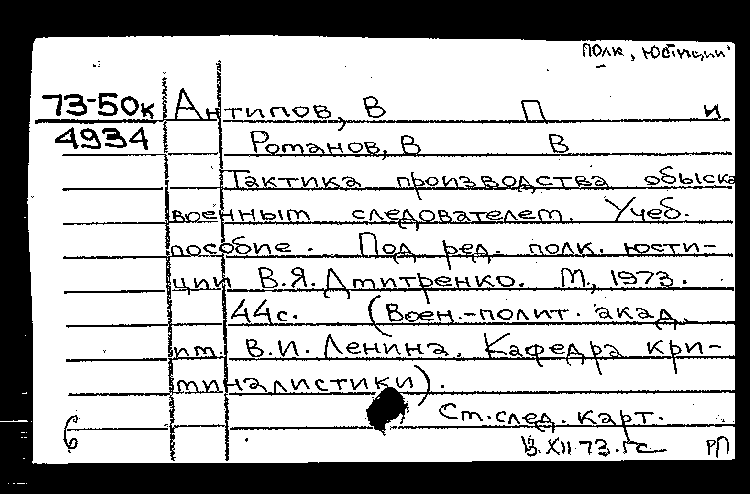 полк, юстиции
73-50к Антипов, В П и
4934 Романов, В В
Тактика производства обыска
военным следователем. Учеб.
пособие. Под ред. полк. юсти-
ции В.Я. Дмитренко. М, 1973.
44с. (Воен.-полит. акад.
им. В.И. Ленина. Кафедра кри-
миналистики).
Ст. след. карт.
6 13.XII.73. РП